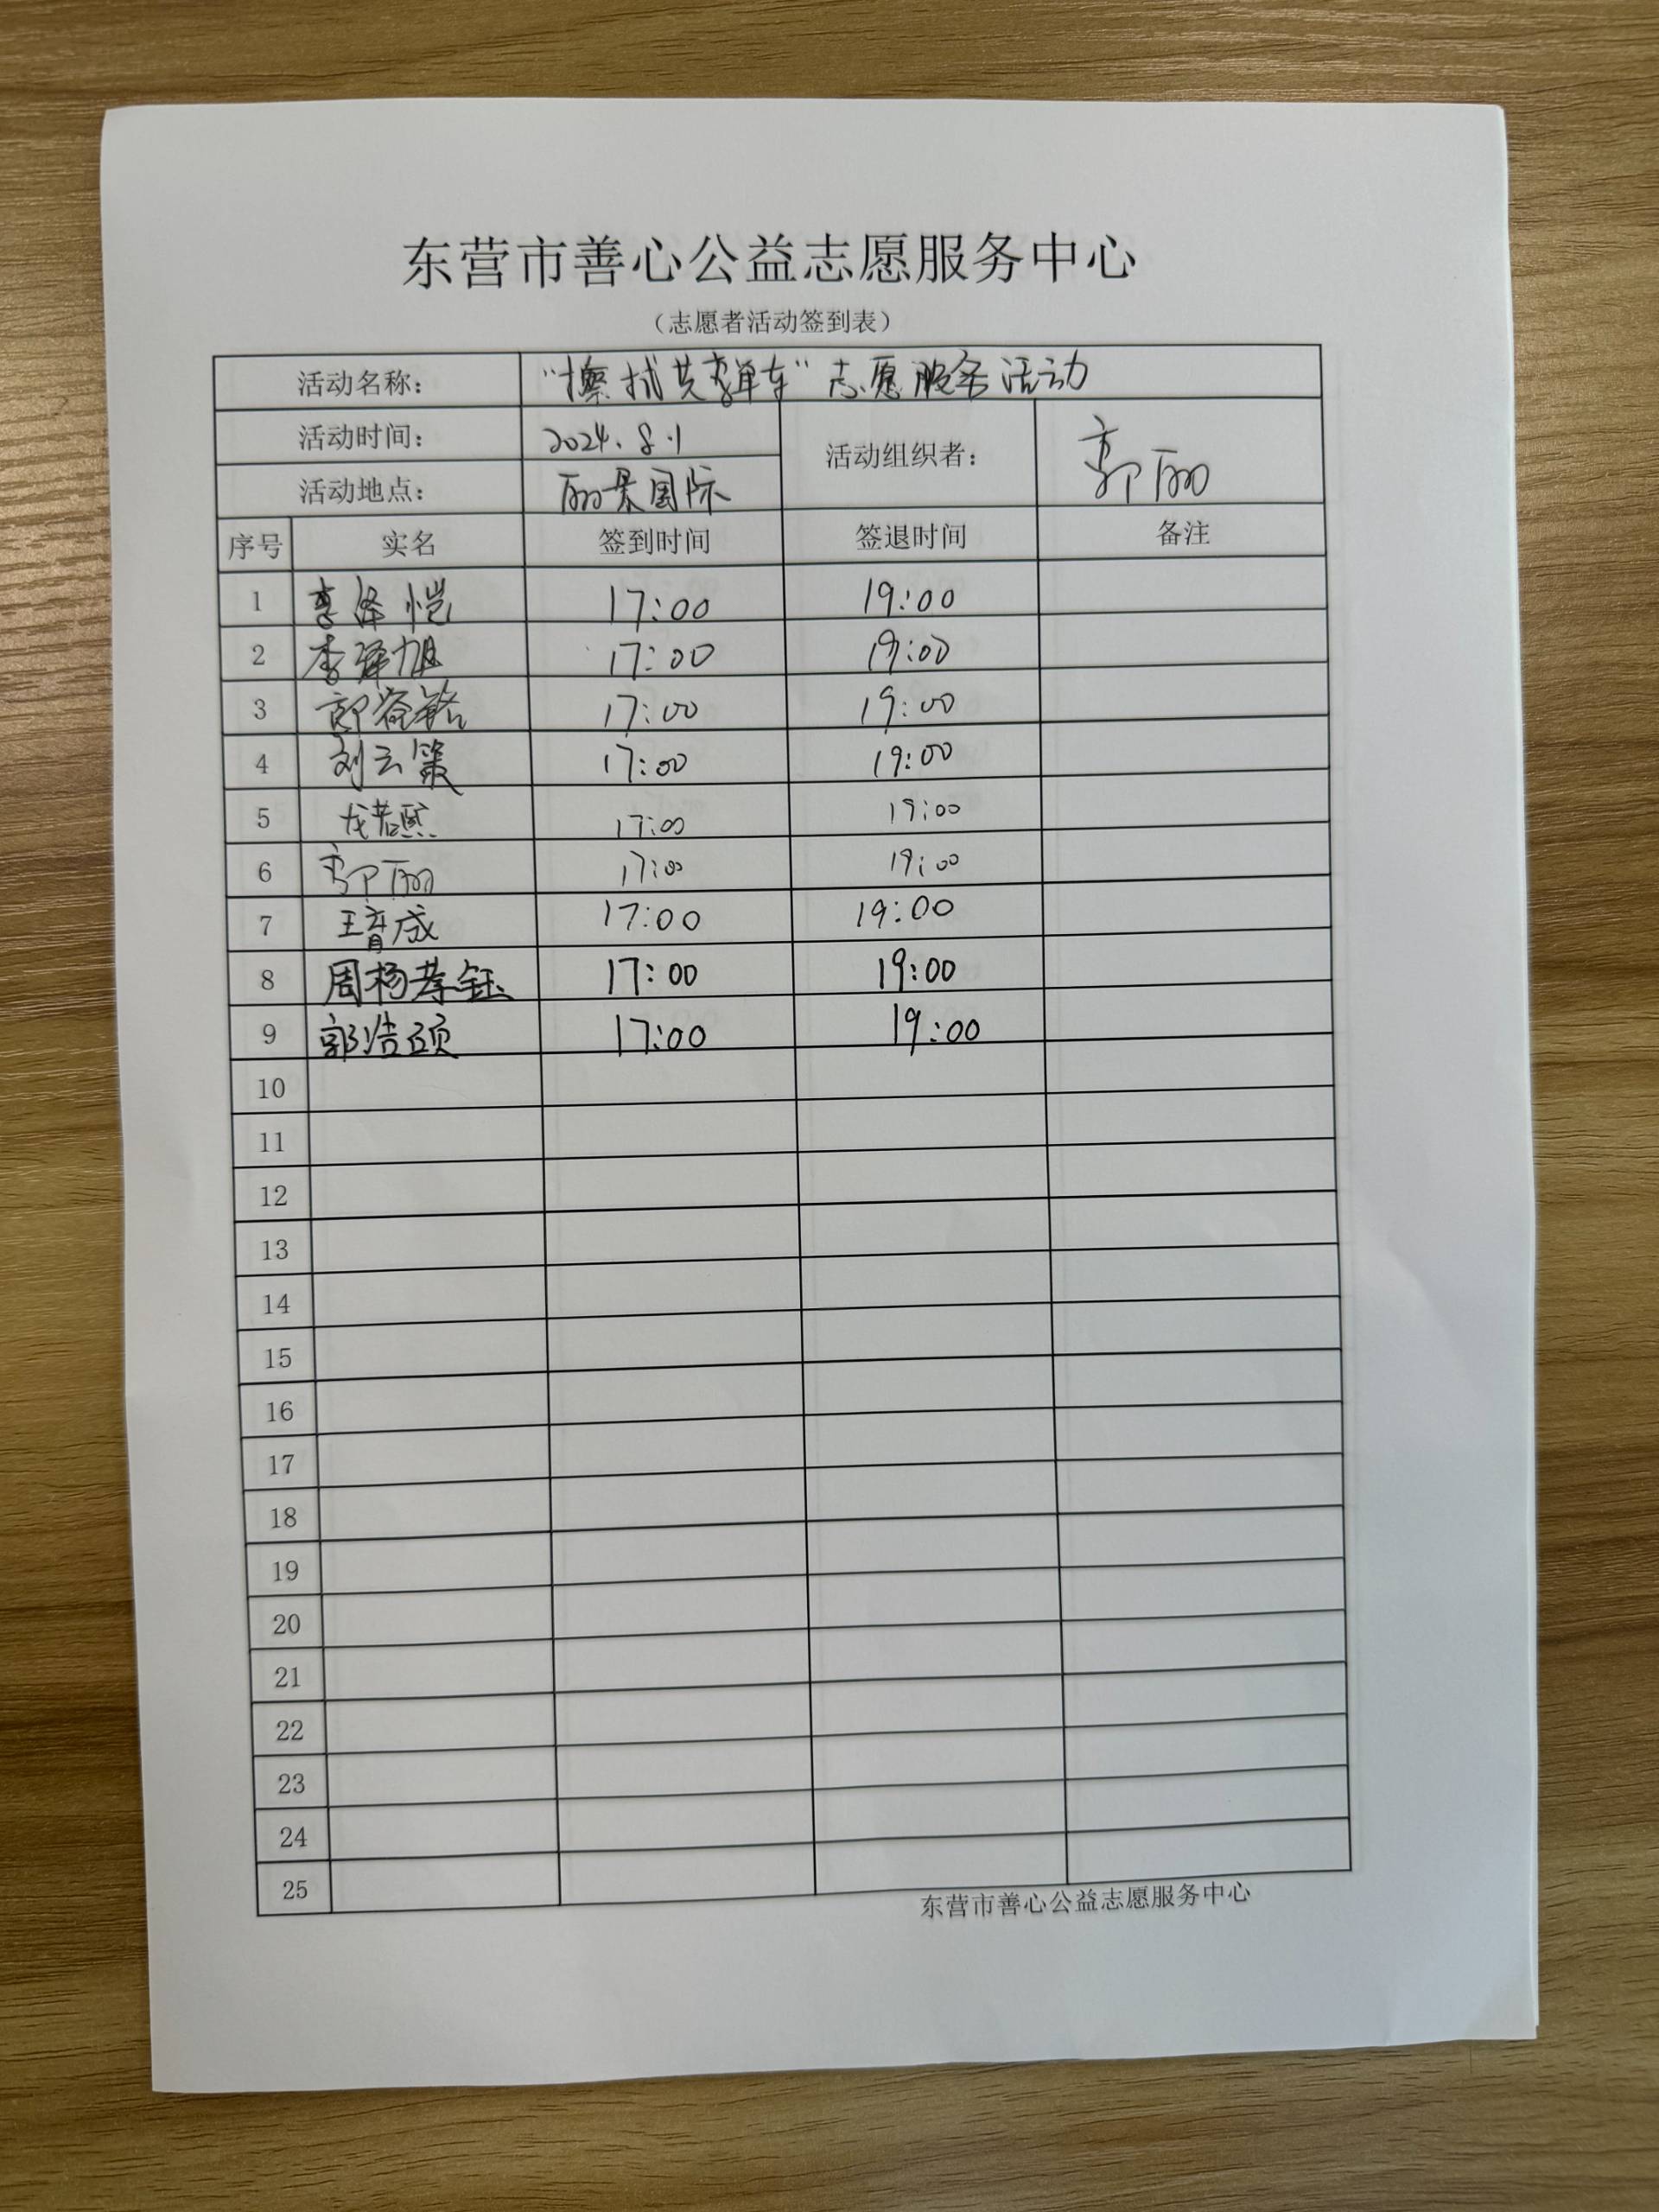 东营市善心公益志愿服务中心
（志愿者活动签到表）
活动名称： “擦拭共享单车”志愿服务活动
活动时间： 2024.8.1 活动组织者： 郭丽
活动地点： 丽景国际
序号 实名 签到时间 签退时间 备注
1 李泽恺 17:00 19:00
2 李泽旭 17:00 19:00
3 17:00 19:00
4 刘云箓 17:00 19:00
5 17:00 19:00
6 郭丽 17:00 19:00
7 王育成 17:00 19:00
8 周杨孝钰 17:00 19:00
9 郭浩硕 17:00 19:00
10
11
12
13
14
15
16
17
18
19
20
21
22
23
24
25
东营市善心公益志愿服务中心